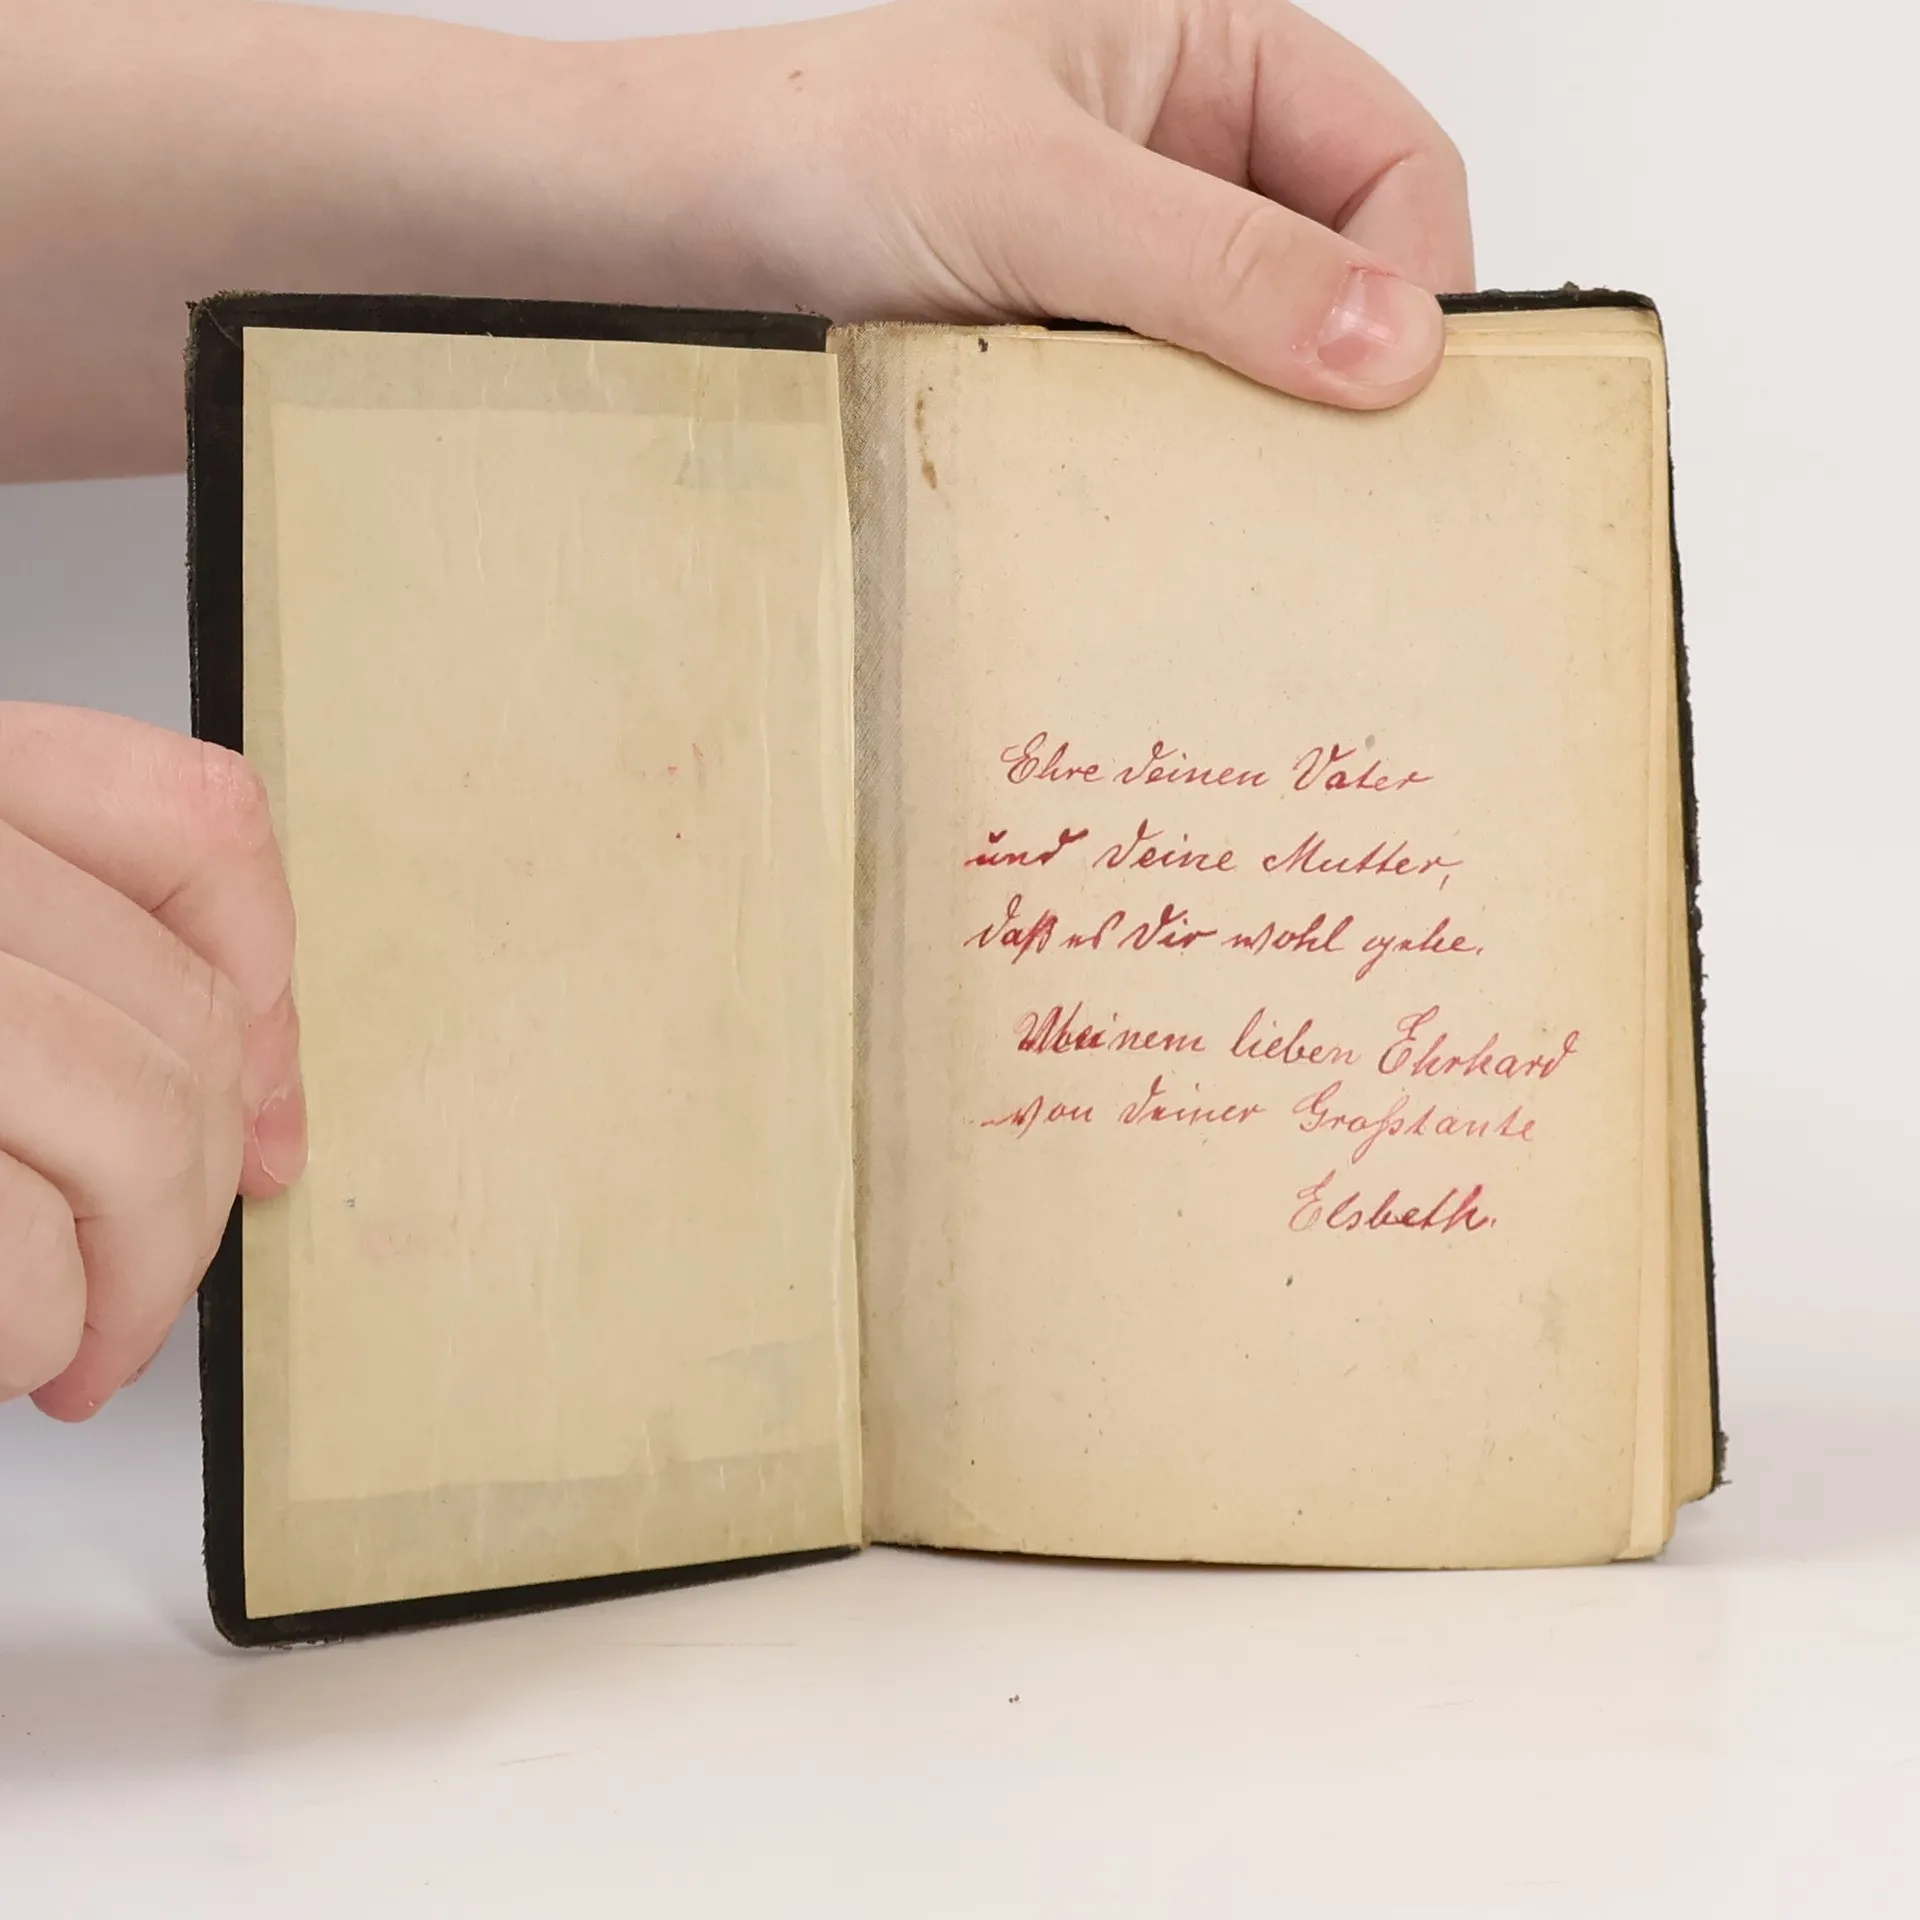 Ehre deinen Vater
und deine Mutter,
daß es dir wohl gehe.
Meinem lieben Ehrhard
von deiner Großtante
Elsbeth.